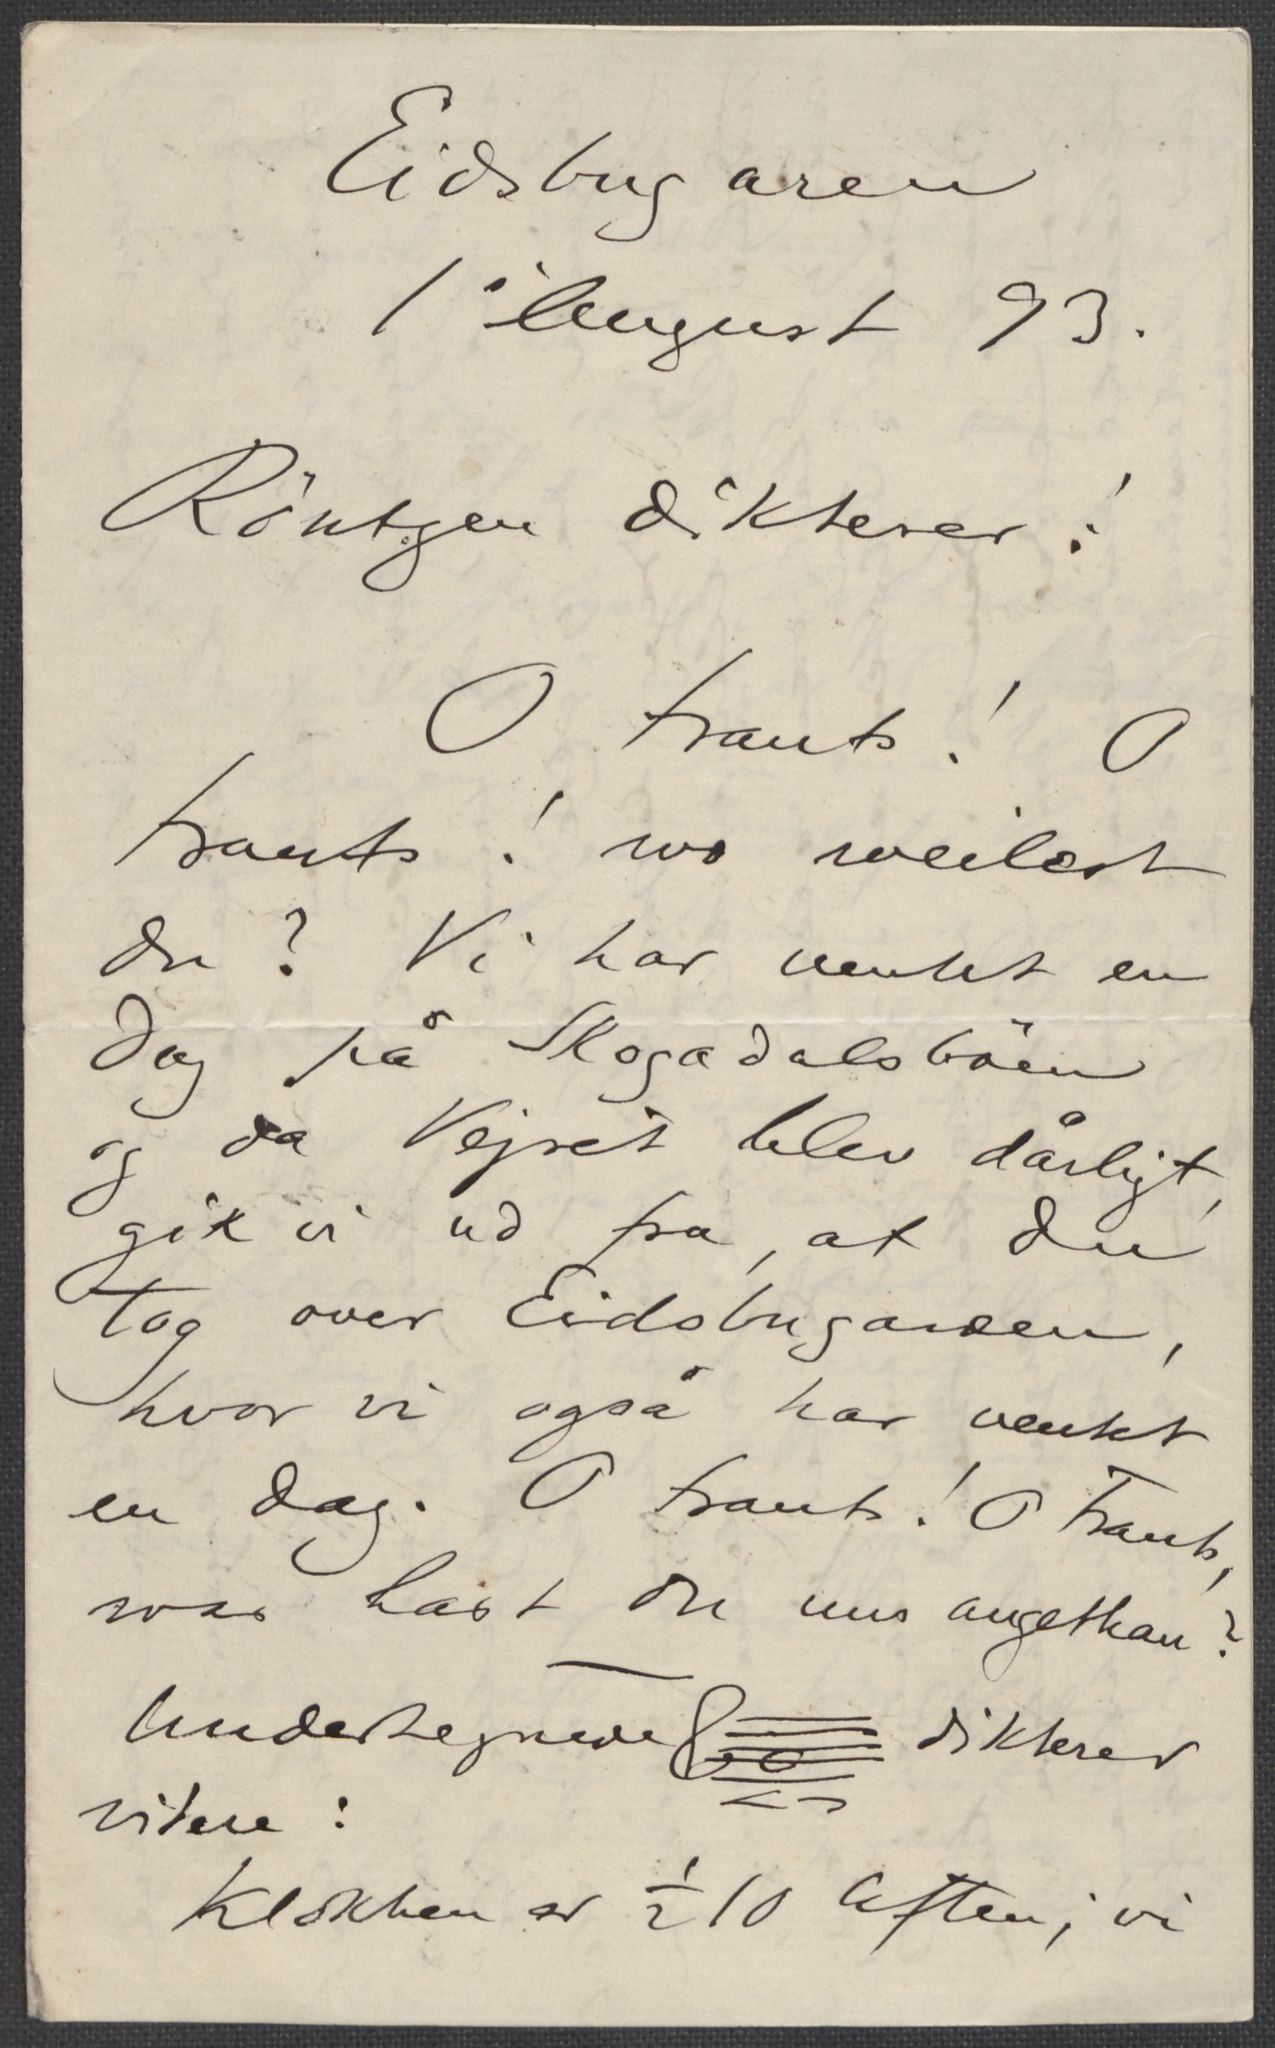 Eidsbugaren
1' August 93.
Röntgen dikterer:
O Frants! O
Frants! wo weilest
du? Vi har ventet en
Dag på Skogadalsböen
og da Vejret blev dårligt,
gik vi ud fra, at du
tog over Eidsbugaren,
hvor vi også har ventet
en Dag. O Frants! O Frants,
was hast du uns angethan?
Undertegnede dikterer
videre:
Klokken er ½10 Aften; vi